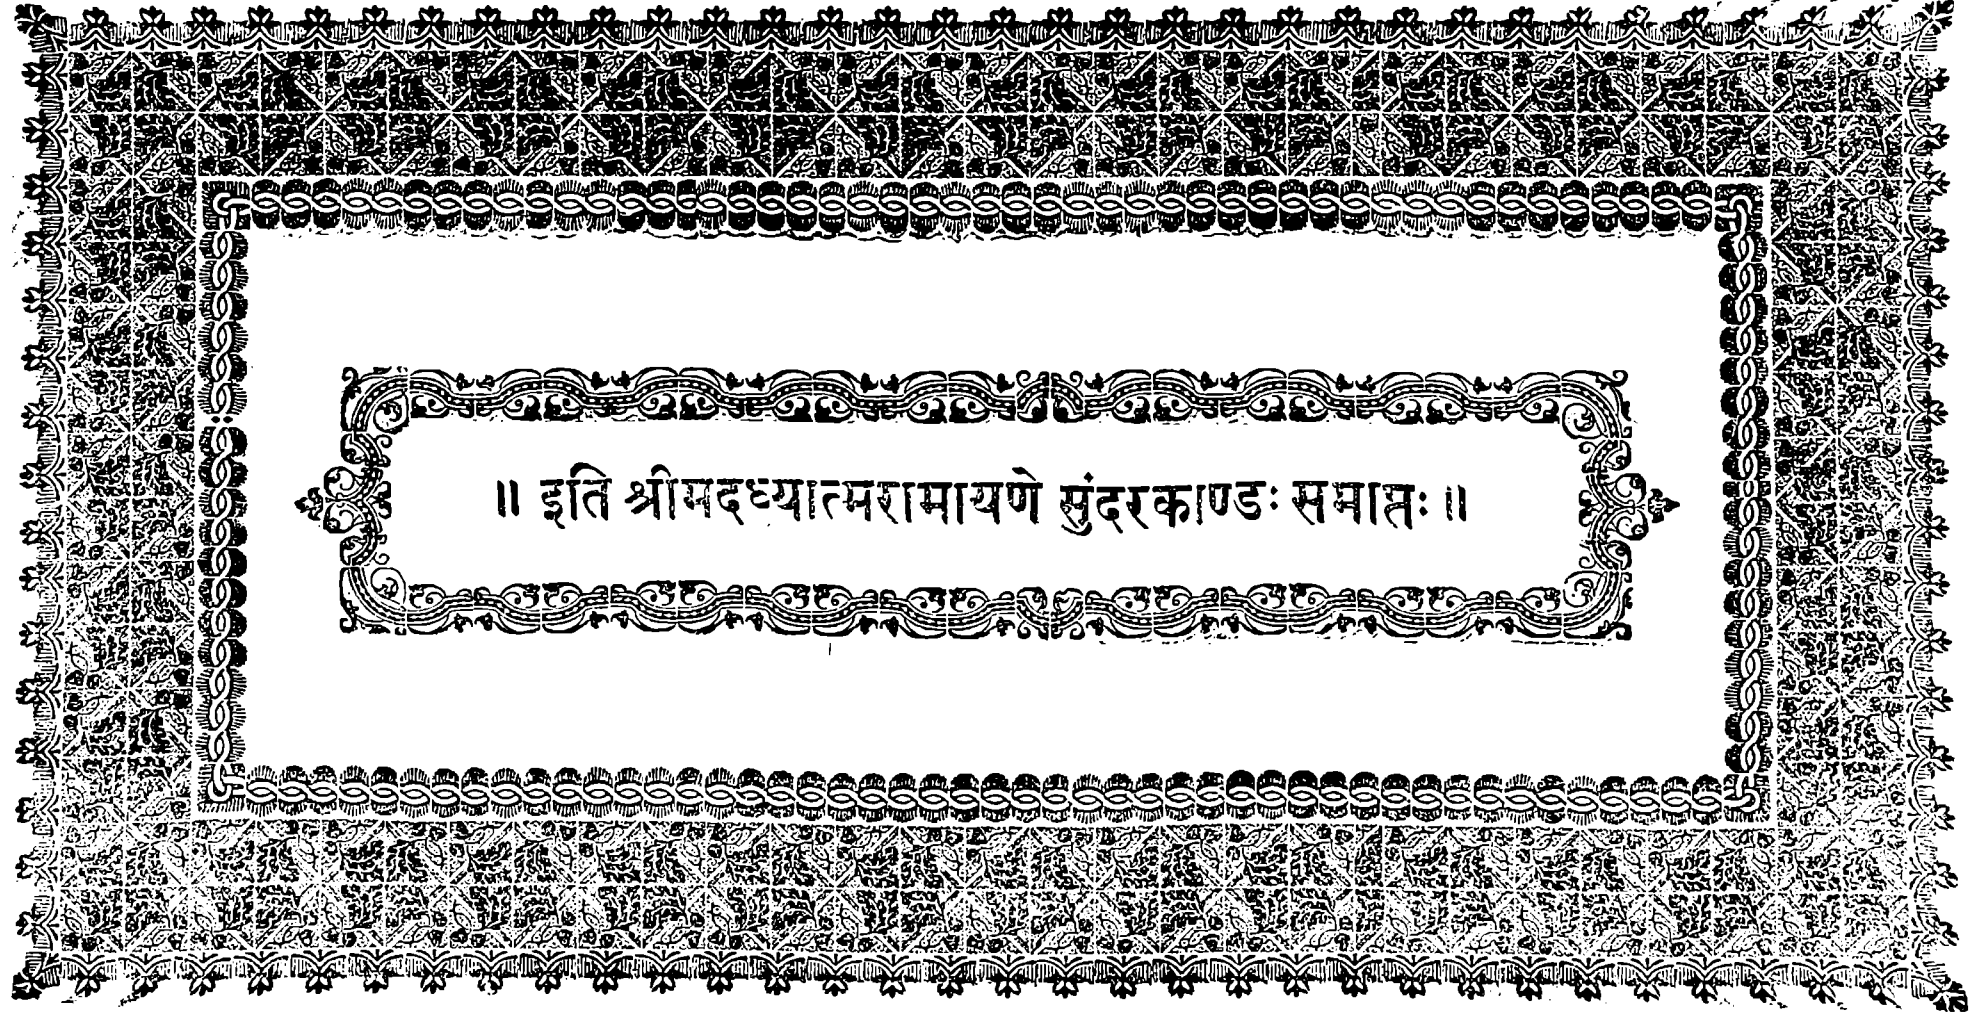 ॥ इति श्रीमदध्यात्मरामायणे सुंदरकाण्डः समाप्तः ॥